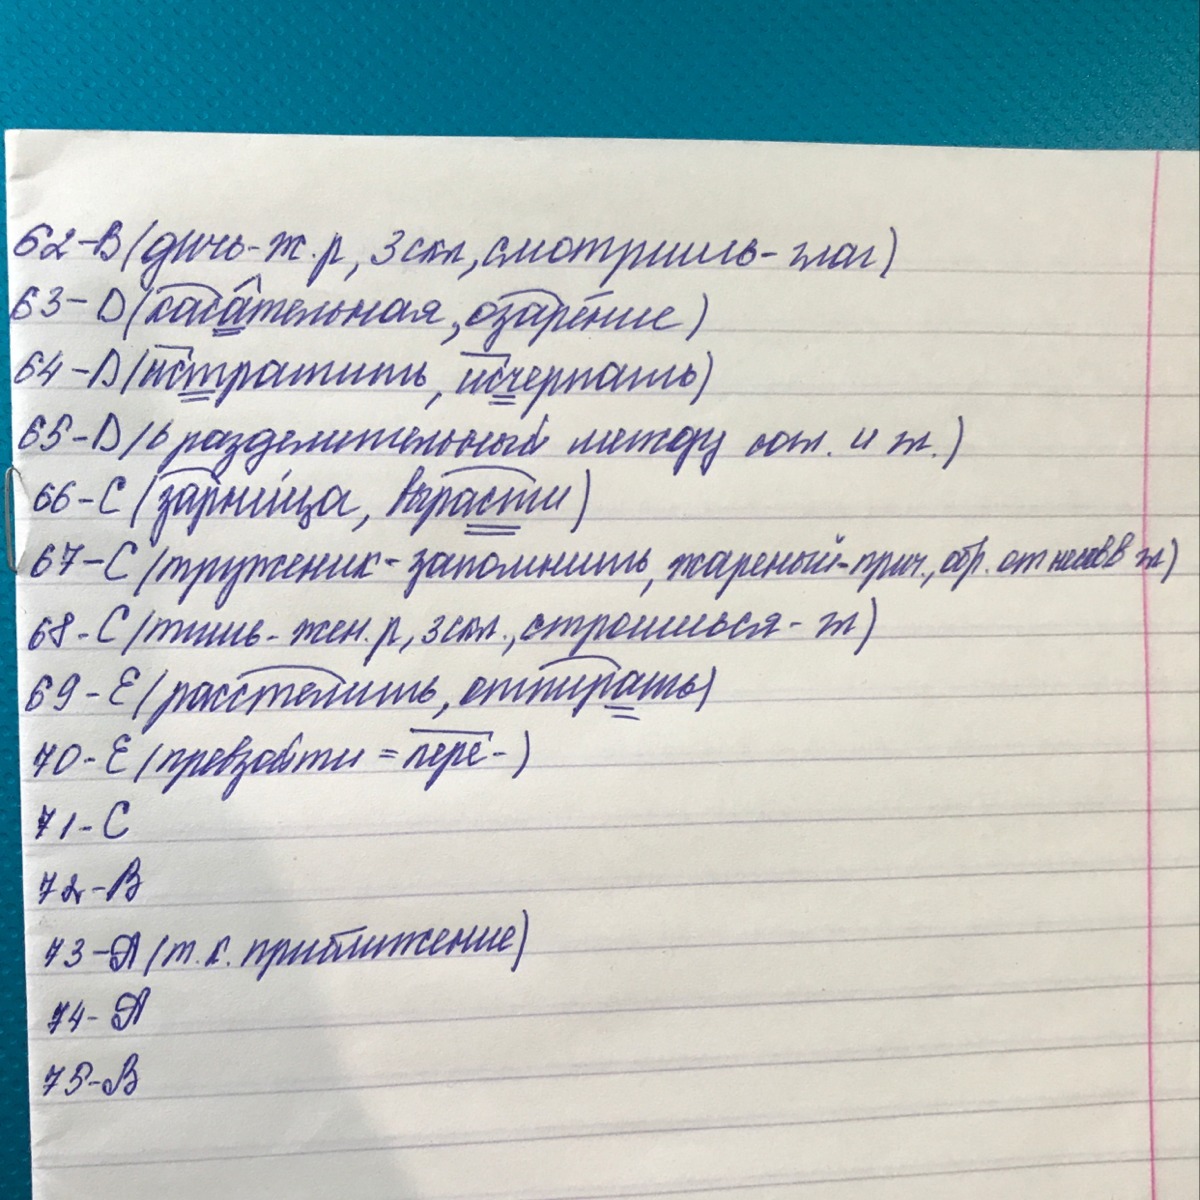 62-В (дичь-ж.р, 3скл, смотришь-глаг)
63-D (касательная, озарение)
64-D (истратить, исчерпать)
65-D (ь разделительный между согл. и гл.)
66-С (зарница, вырасти)
67-С (труженик-запомнить, жареный-прич., обр. от несов В гл)
68-С (тишь-жен.р, 3скл., строишься-гл)
69-Е (расстелить, оттирать)
70-Е (превзойти = пере-)
71-С
72-В
73-А (т.к. приближение)
74-А
75-В